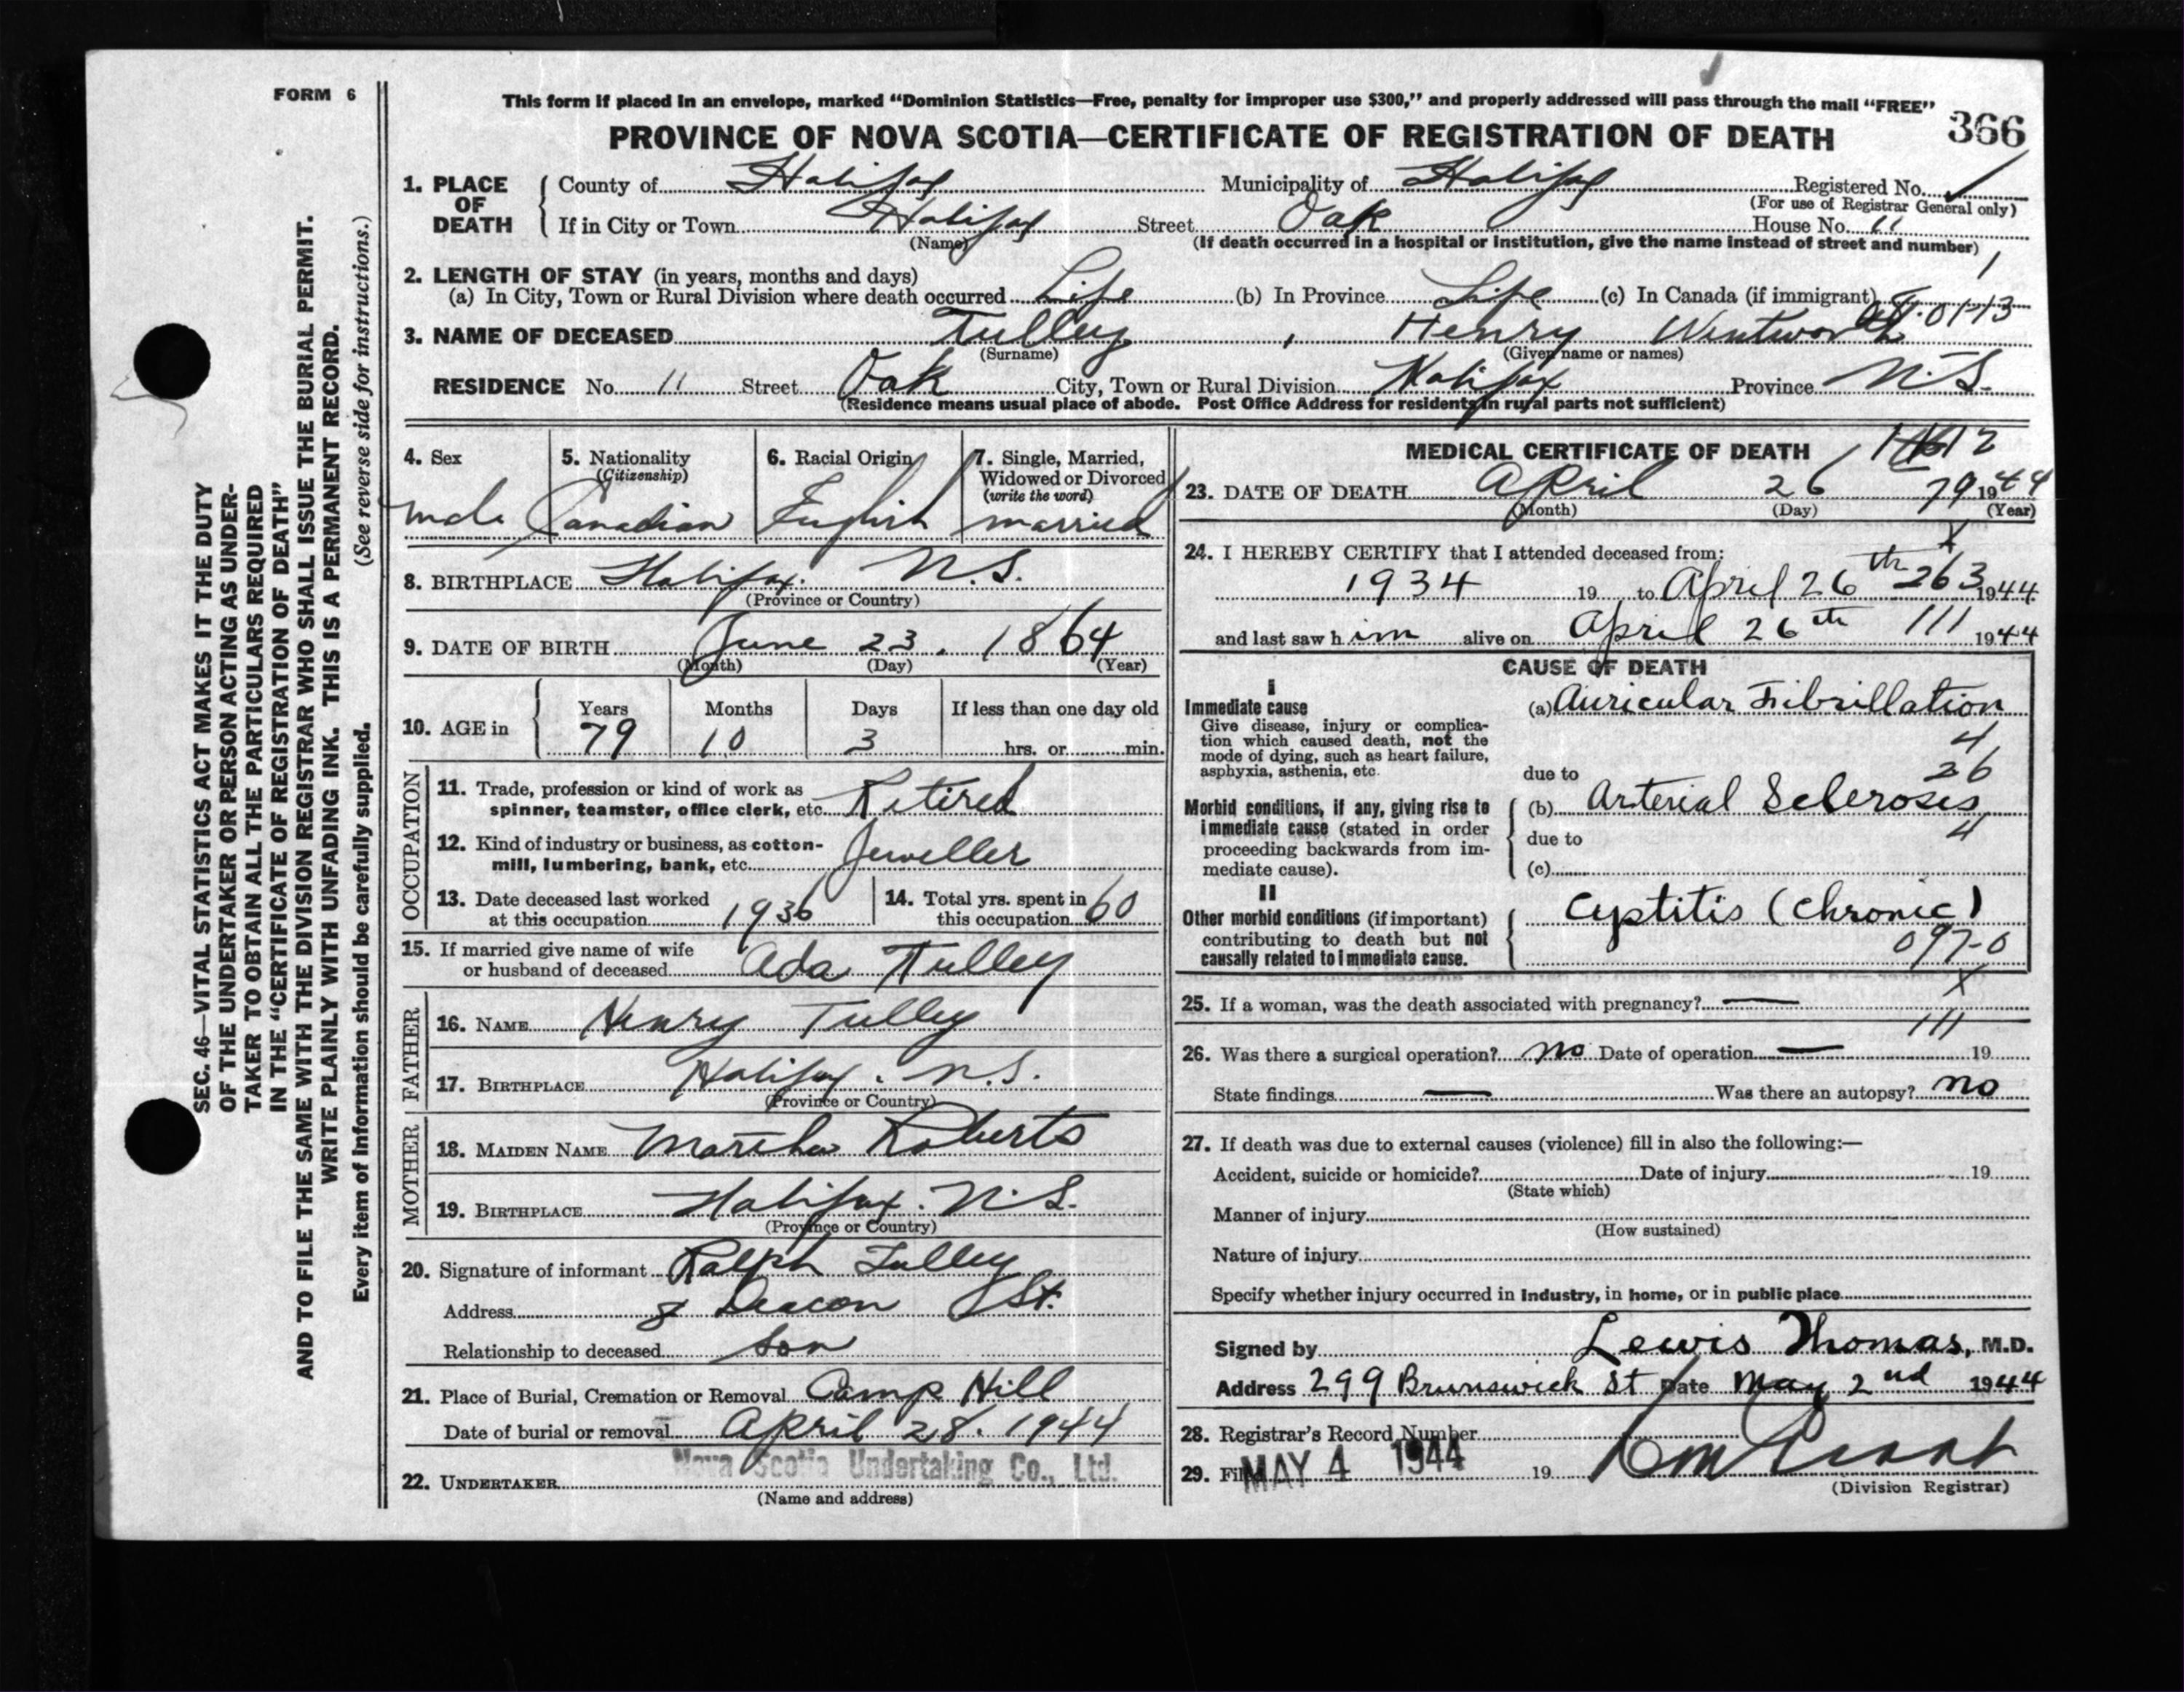 FORM 6
This form if placed in an envelope, marked “Dominion Statistics—Free, penalty for improper use $300,” and properly addressed will pass through the mail “FREE”
PROVINCE OF NOVA SCOTIA—CERTIFICATE OF REGISTRATION OF DEATH
366
1. PLACE OF DEATH { County of Halifax Municipality of Halifax Registered No. ✓
(For use of Registrar General only)
If in City or Town Halifax Street Oak House No. 11
(Name) (If death occurred in a hospital or institution, give the name instead of street and number)
1
2. LENGTH OF STAY (in years, months and days)
(a) In City, Town or Rural Division where death occurred Life (b) In Province Life (c) In Canada (if immigrant)
01-13
3. NAME OF DECEASED Tulley, Henry Wentworth
(Surname) (Given name or names)
RESIDENCE No. 11 Street Oak City, Town or Rural Division Halifax Province N.S.
(Residence means usual place of abode. Post Office Address for residents in rural parts not sufficient)
4. Sex male
5. Nationality (Citizenship) Canadian
6. Racial Origin English
7. Single, Married, Widowed or Divorced (write the word) married
8. BIRTHPLACE Halifax. N.S.
(Province or Country)
9. DATE OF BIRTH June 23. 1864
(Month) (Day) (Year)
10. AGE in { Years 79 Months 10 Days 3 If less than one day old hrs. or min.
OCCUPATION
11. Trade, profession or kind of work as spinner, teamster, office clerk, etc. Retired
12. Kind of industry or business, as cotton-mill, lumbering, bank, etc. Jeweller
13. Date deceased last worked at this occupation 1936
14. Total yrs. spent in this occupation 60
15. If married give name of wife or husband of deceased Ada Tulley
FATHER
16. NAME Henry Tulley
17. BIRTHPLACE Halifax. N.S.
(Province or Country)
MOTHER
18. MAIDEN NAME Martha Roberts
19. BIRTHPLACE Halifax. N.S.
(Province or Country)
20. Signature of informant Ralph Tulley
Address 8 Deacon St.
Relationship to deceased Son
21. Place of Burial, Cremation or Removal Camp Hill
Date of burial or removal April 28. 1944
22. UNDERTAKER Nova Scotia Undertaking Co., Ltd.
(Name and address)
MEDICAL CERTIFICATE OF DEATH
23. DATE OF DEATH April 26 79 1944
(Month) (Day) (Year)
24. I HEREBY CERTIFY that I attended deceased from:
1934 19 to April 26th 263 1944
and last saw him alive on April 26th 111 1944
CAUSE OF DEATH
I
Immediate cause
Give disease, injury or complica-
tion which caused death, not the
mode of dying, such as heart failure,
asphyxia, asthenia, etc.
(a) Auricular Fibrillation
4
26
due to
Morbid conditions, if any, giving rise to
immediate cause (stated in order
proceeding backwards from im-
mediate cause).
(b) Arterial Scleroses
due to 4
(c)
II
Other morbid conditions (if important)
contributing to death but not
causally related to immediate cause.
Cystitis (Chronic)
097-0
X
25. If a woman, was the death associated with pregnancy? —
111
26. Was there a surgical operation? no Date of operation — 19
State findings — Was there an autopsy? no
27. If death was due to external causes (violence) fill in also the following:—
Accident, suicide or homicide? Date of injury 19
(State which)
Manner of injury
(How sustained)
Nature of injury
Specify whether injury occurred in industry, in home, or in public place
Signed by Lewis Thomas, M.D.
Address 299 Brunswick St Date May 2nd 1944
28. Registrar's Record Number
29. Filed MAY 4 1944 19
(Division Registrar)
SEC. 46—VITAL STATISTICS ACT MAKES IT THE DUTY
OF THE UNDERTAKER OR PERSON ACTING AS UNDER-
TAKER TO OBTAIN ALL THE PARTICULARS REQUIRED
IN THE “CERTIFICATE OF REGISTRATION OF DEATH”
AND TO FILE THE SAME WITH THE DIVISION REGISTRAR WHO SHALL ISSUE THE BURIAL PERMIT.
WRITE PLAINLY WITH UNFADING INK. THIS IS A PERMANENT RECORD.
Every item of information should be carefully supplied. (See reverse side for instructions.)